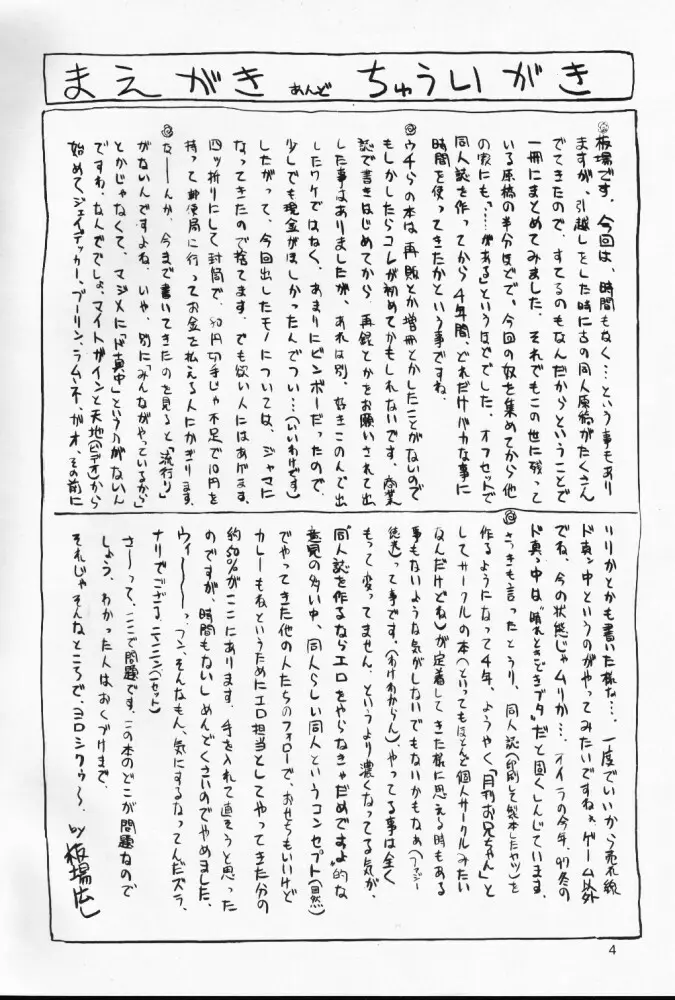 まえがき あんど ちゅういがき
◎板場です。今回は、時間もなく…という事もあり
ますが、引越しをした時に古の同人原稿がたくさん
でてきたので、すてるのもなんだからということで
一冊にまとめてみました。それでもこの世に残って
いる原稿の半分ほどで、今回の奴を集めてから他
の家にも、"……がある"というほどでした。オフセットで
同人誌を作ってから4年間、どれだけバカな事に
時間を使ってきたかという事ですね。
◎ウチらの本は、再販とか増冊とかしたことがないので
もしかしたらコレが初めてかもしれないです。商業
誌で書きはじめてから、再録とかをお願いされて出
した事はありましたが、あれは別。好きこのんで出
したワケではなく、あまりにビンボーだったので、
少しでも現金がほしかったんでつい…(いいわけです)
したがって、今回出したモノについては、ジャマに
なってきたので捨てます。でも欲い人にはあげます。
四ツ折りにして封筒で、80円切手じゃ不足で10円を
持って郵便局に行ってお金を払える人にかぎります。
◎な――んか、今まで書いてきたのを見ると「流行り」
がないんですよね。いや、別に「みんながやっているから」
とかじゃなくて、マジメに「ド真中」というのがないん
ですわ。なんででしょ。マイトガインと天地(ビデオ)から
始めて、ジェイデッカー、プーリン、ラムネ、ガオ、その前に
リリカとかも書いた様な…。一度でいいから売れ線
ド真ン中というのがやってみたいですねぇ。ゲーム以外
でね、今の状態じゃムリか…。オイラの今年、97冬の
ド真っ中は"晴れときどきブタ"だと固くしんじています。
◎さっきも言ったとうり、同人誌(印刷して製本したヤツ)を
作るようになって4年、ようやく「月刊お兄ちゃん」と
してサークルの本(といってもほとんど個人サークルみたい
なんだけどね)が定着してきた様に思える時もある
事もないような気がしないでもないかもなぁ(ファジー
徒送)って事です。(わけわからん)、やってる事は全く
もって変ってません。というより濃くなってる気が。
"同人誌を作るならエロをやらなきゃだめですよ"的な
意見の多い中、同人らしい同人というコンセプト(自然)
でやってきた他の人たちのフォローで、おせちもいいけど
カレーもねというためにエロ担当としてやってきた分の
約50%がここにあります。手を入れて直そうと思った
のですが、時間もないしめんどくさいのでやめました。
ウィ―――っ、フン、そんなもん、気にするなってんだズラ、
ナリでござる、ニンニン(ゼット)
さ――って、ここで問題です。この本のどこが問題なので
しょう。わかった人はおくづけまで。
それじゃそんなところで、ヨロシクゥ～。 by 板場広し
4